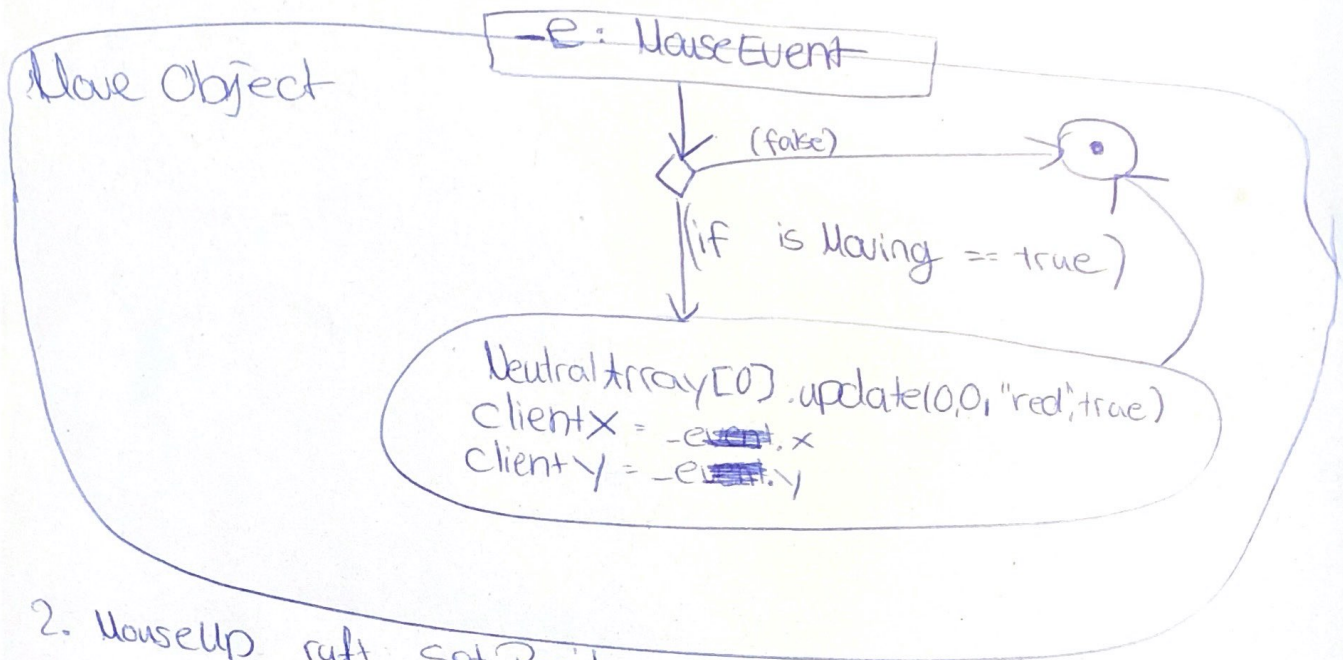 _e: MouseEvent
Move Object
(false)
(if is Moving == true)
NeutralArray[0].update(0,0,"red",true)
clientX = _e.x
clientY = _e.y
2. MouseUp ruft